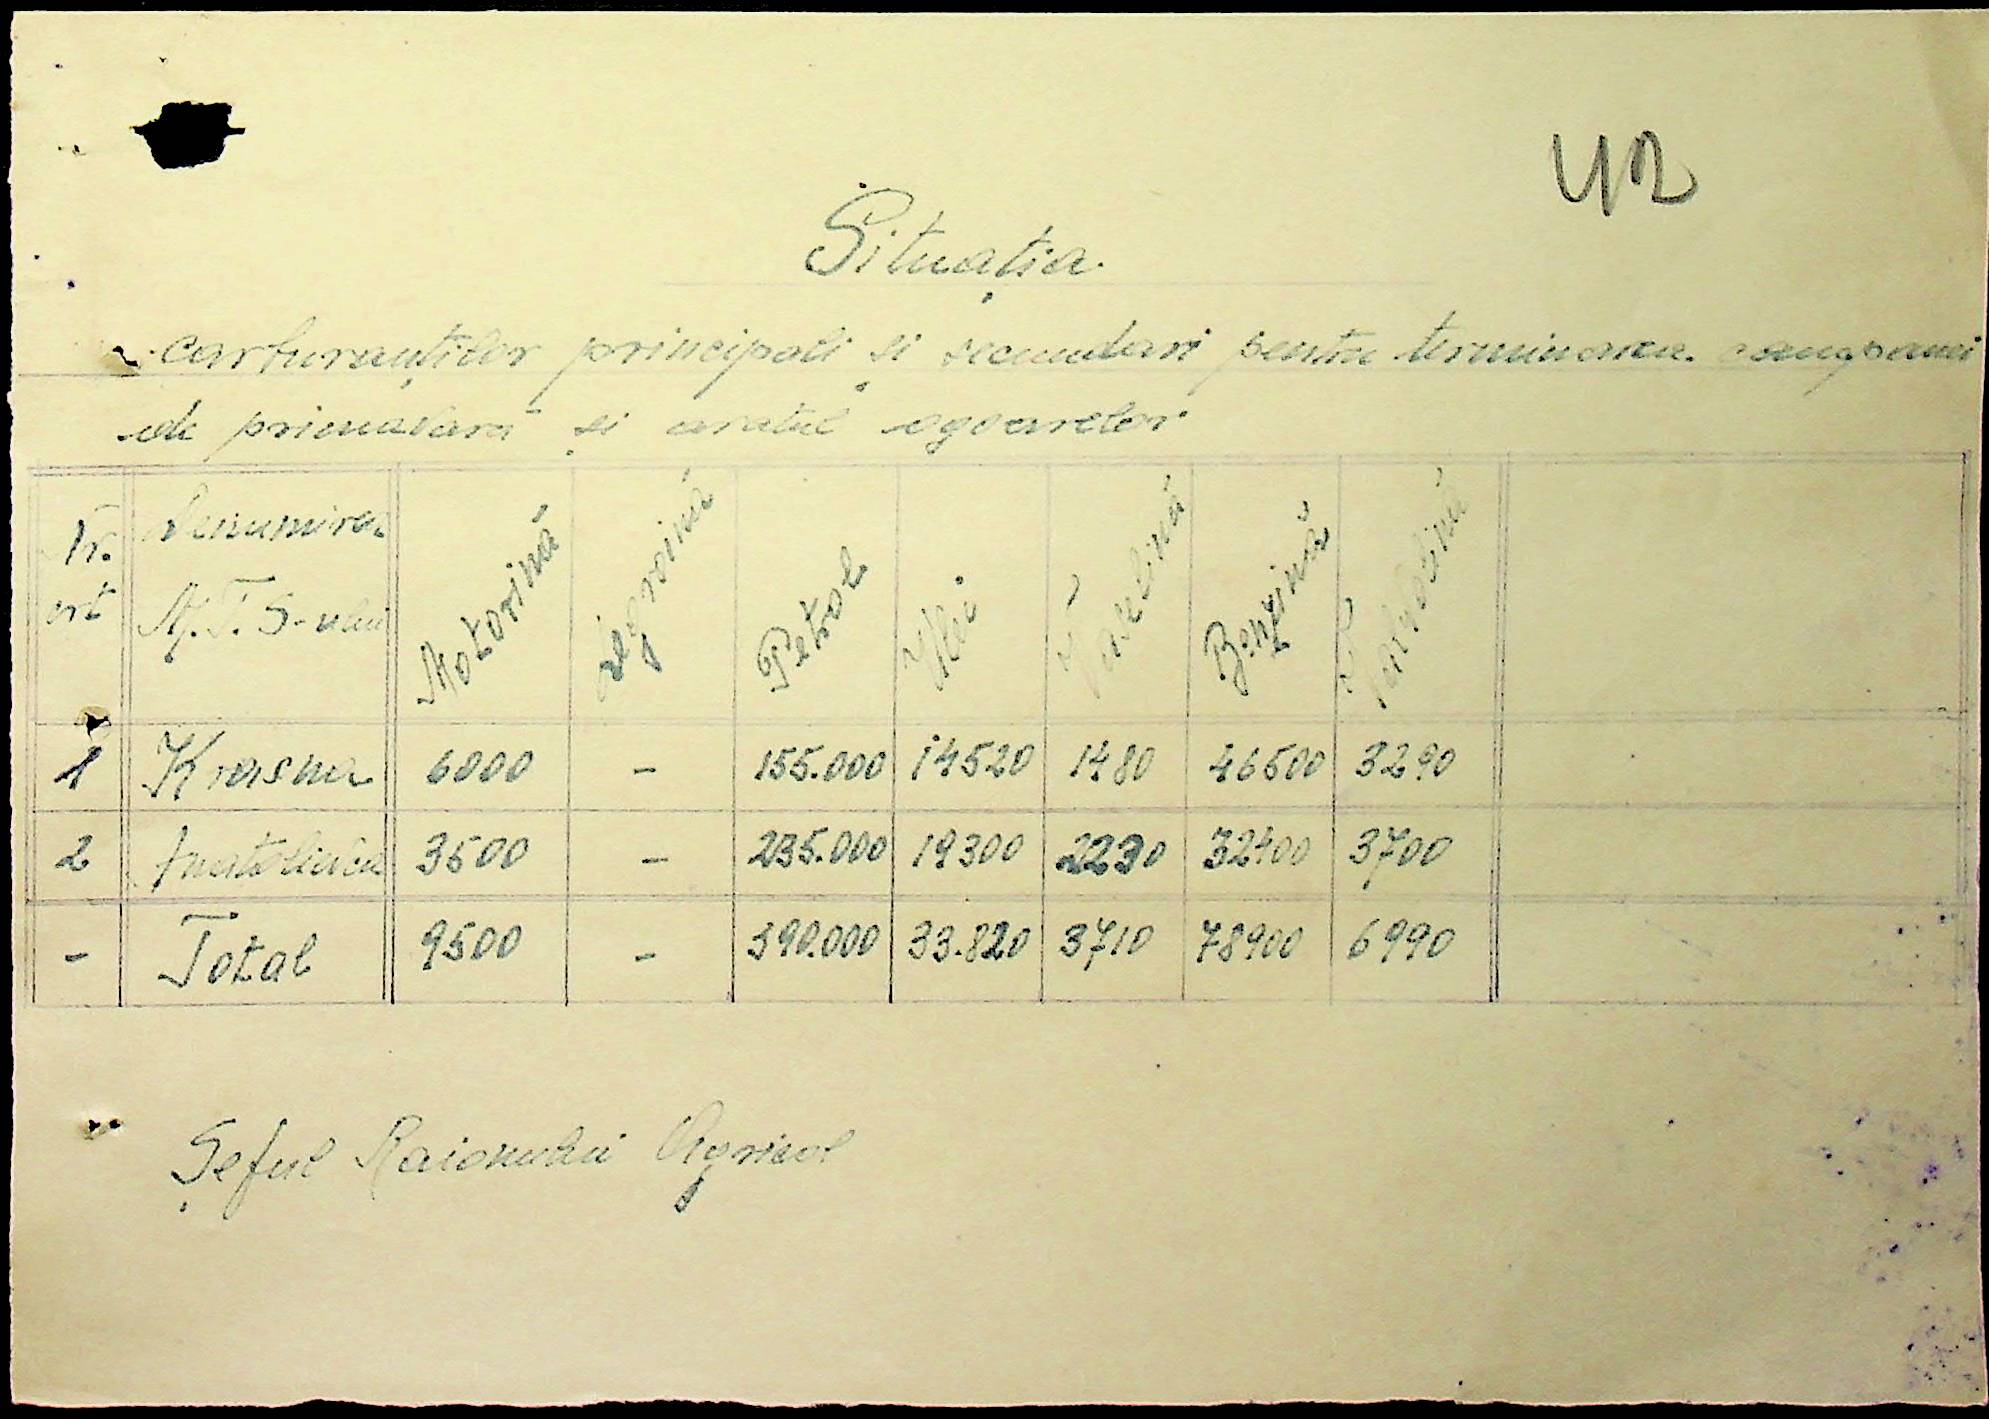 42
Situația
carburanților principali si secundari pentru terminarea campaniei
de primavară și aratul ogoarelor
Nr. ort | Denumirea M.T.S-ului | Motorină | Ligroină | Petrol | Ulei | Vaselină | Benzină |
1 | Krasna | 6000 | - | 155.000 | 14520 | 1480 | 46500 | 3290
2 | 3500 | - | 235.000 | 19300 | 2230 | 32400 | 3700
- | Total | 9500 | - | 390.000 | 33.820 | 3710 | 78900 | 6990
Șeful Raionului Agricol